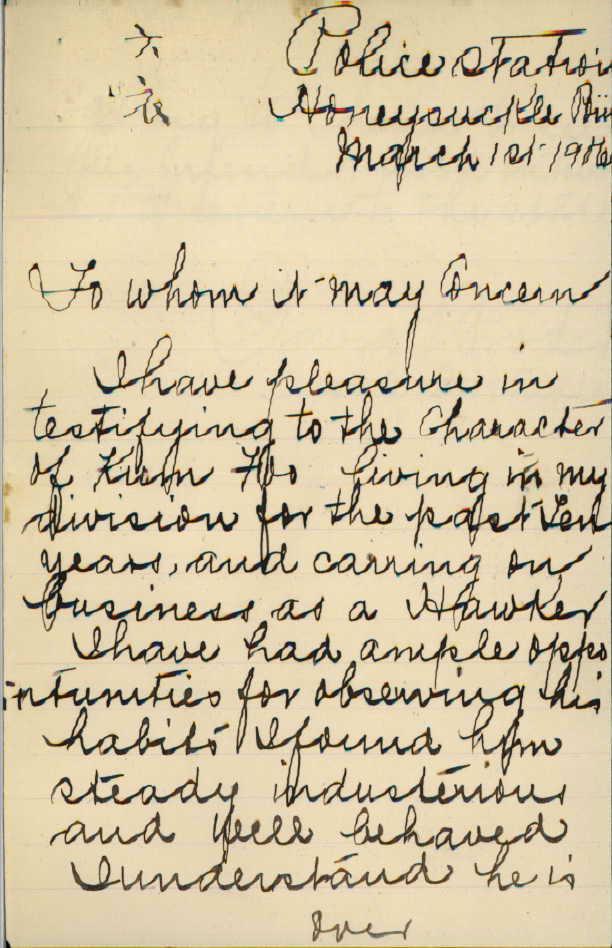 六
Police station
Honeysuckle
March 1st 1906
To whom it may Concern
I have pleasure in
testifying to the Character
of Kum Hoo living in my
division for the past Ten
years, and carring on
business as a Hawker
I have had ample oppo
rtunities for observing his
habits I found him
steady industerious
and well behaved
I understand he is
over